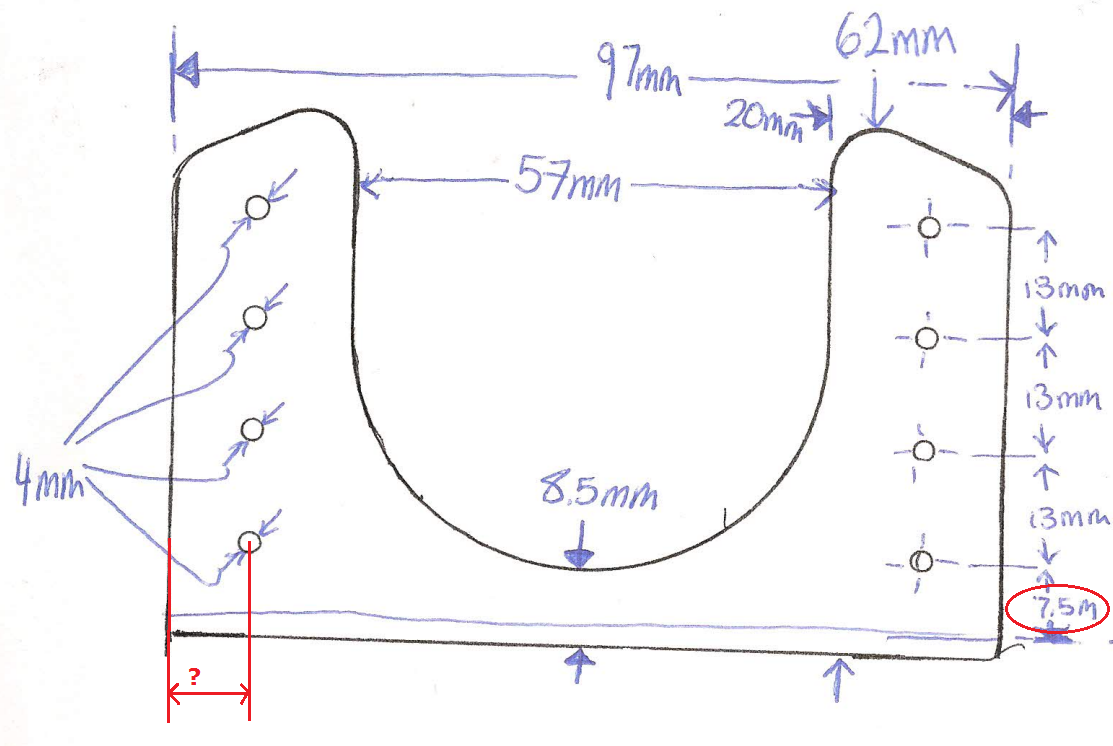 62mm
97mm
20mm
57mm
13mm
13mm
4mm
8.5mm
13mm
7.5m
?